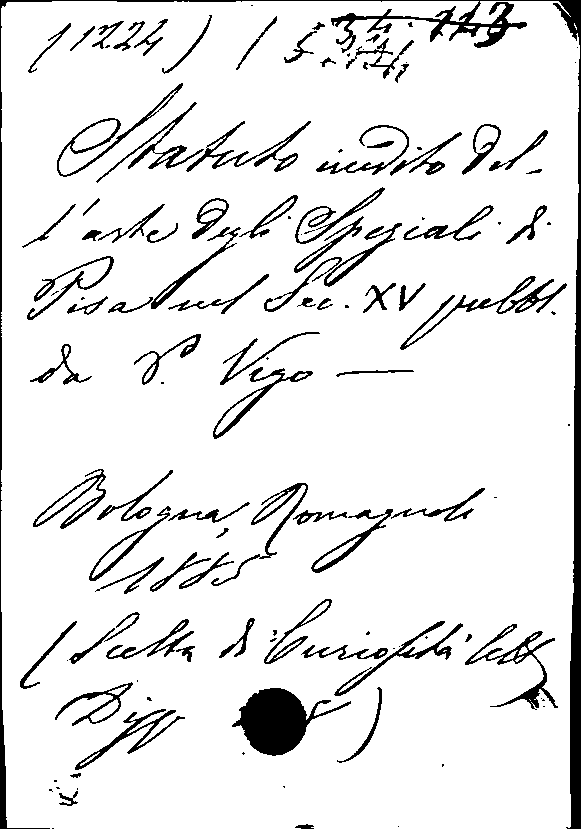 (1224)
Statuto inedito del-
l'arte degli Speziali di
Pisa nel Sec. XV pubbl.
da P. Vigo —
Bologna, Romagnoli
1885
(Scelta di Curiosità lett
Disp